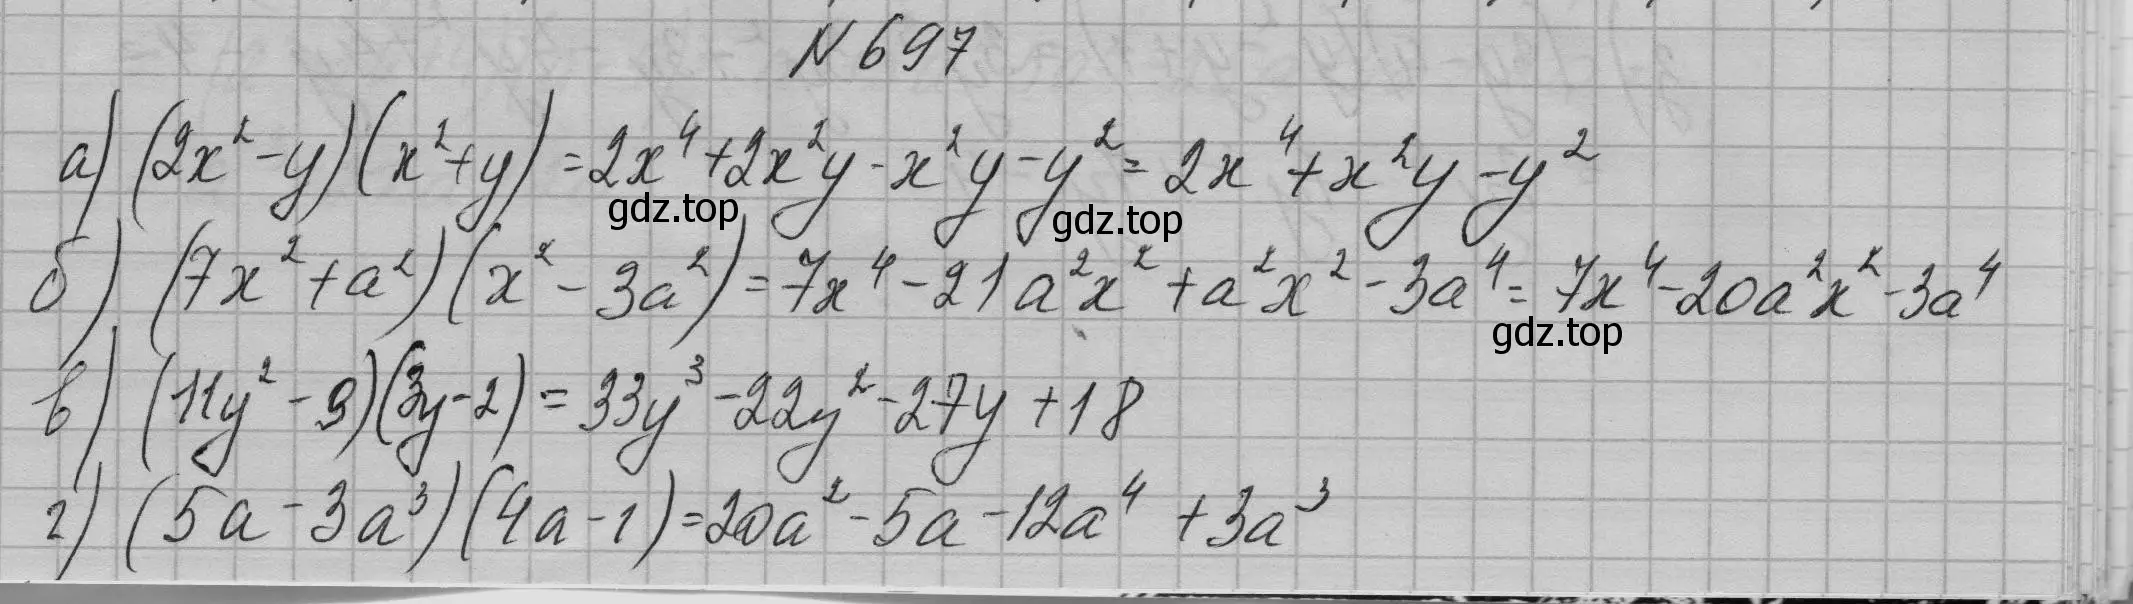 N 697
а) (2x² - y)(x² + y) = 2x⁴ + 2x²y - x²y - y² = 2x⁴ + x²y - y²
gdz.top gdz.top
б) (7x² + a²)(x² - 3a²) = 7x⁴ - 21a²x² + a²x² - 3a⁴ = 7x⁴ - 20a²x² - 3a⁴
gdz.top
в) (11y² - 9)(3y - 2) = 33y³ - 22y² - 27y + 18
г) (5a - 3a³)(4a - 1) = 20a² - 5a - 12a⁴ + 3a³